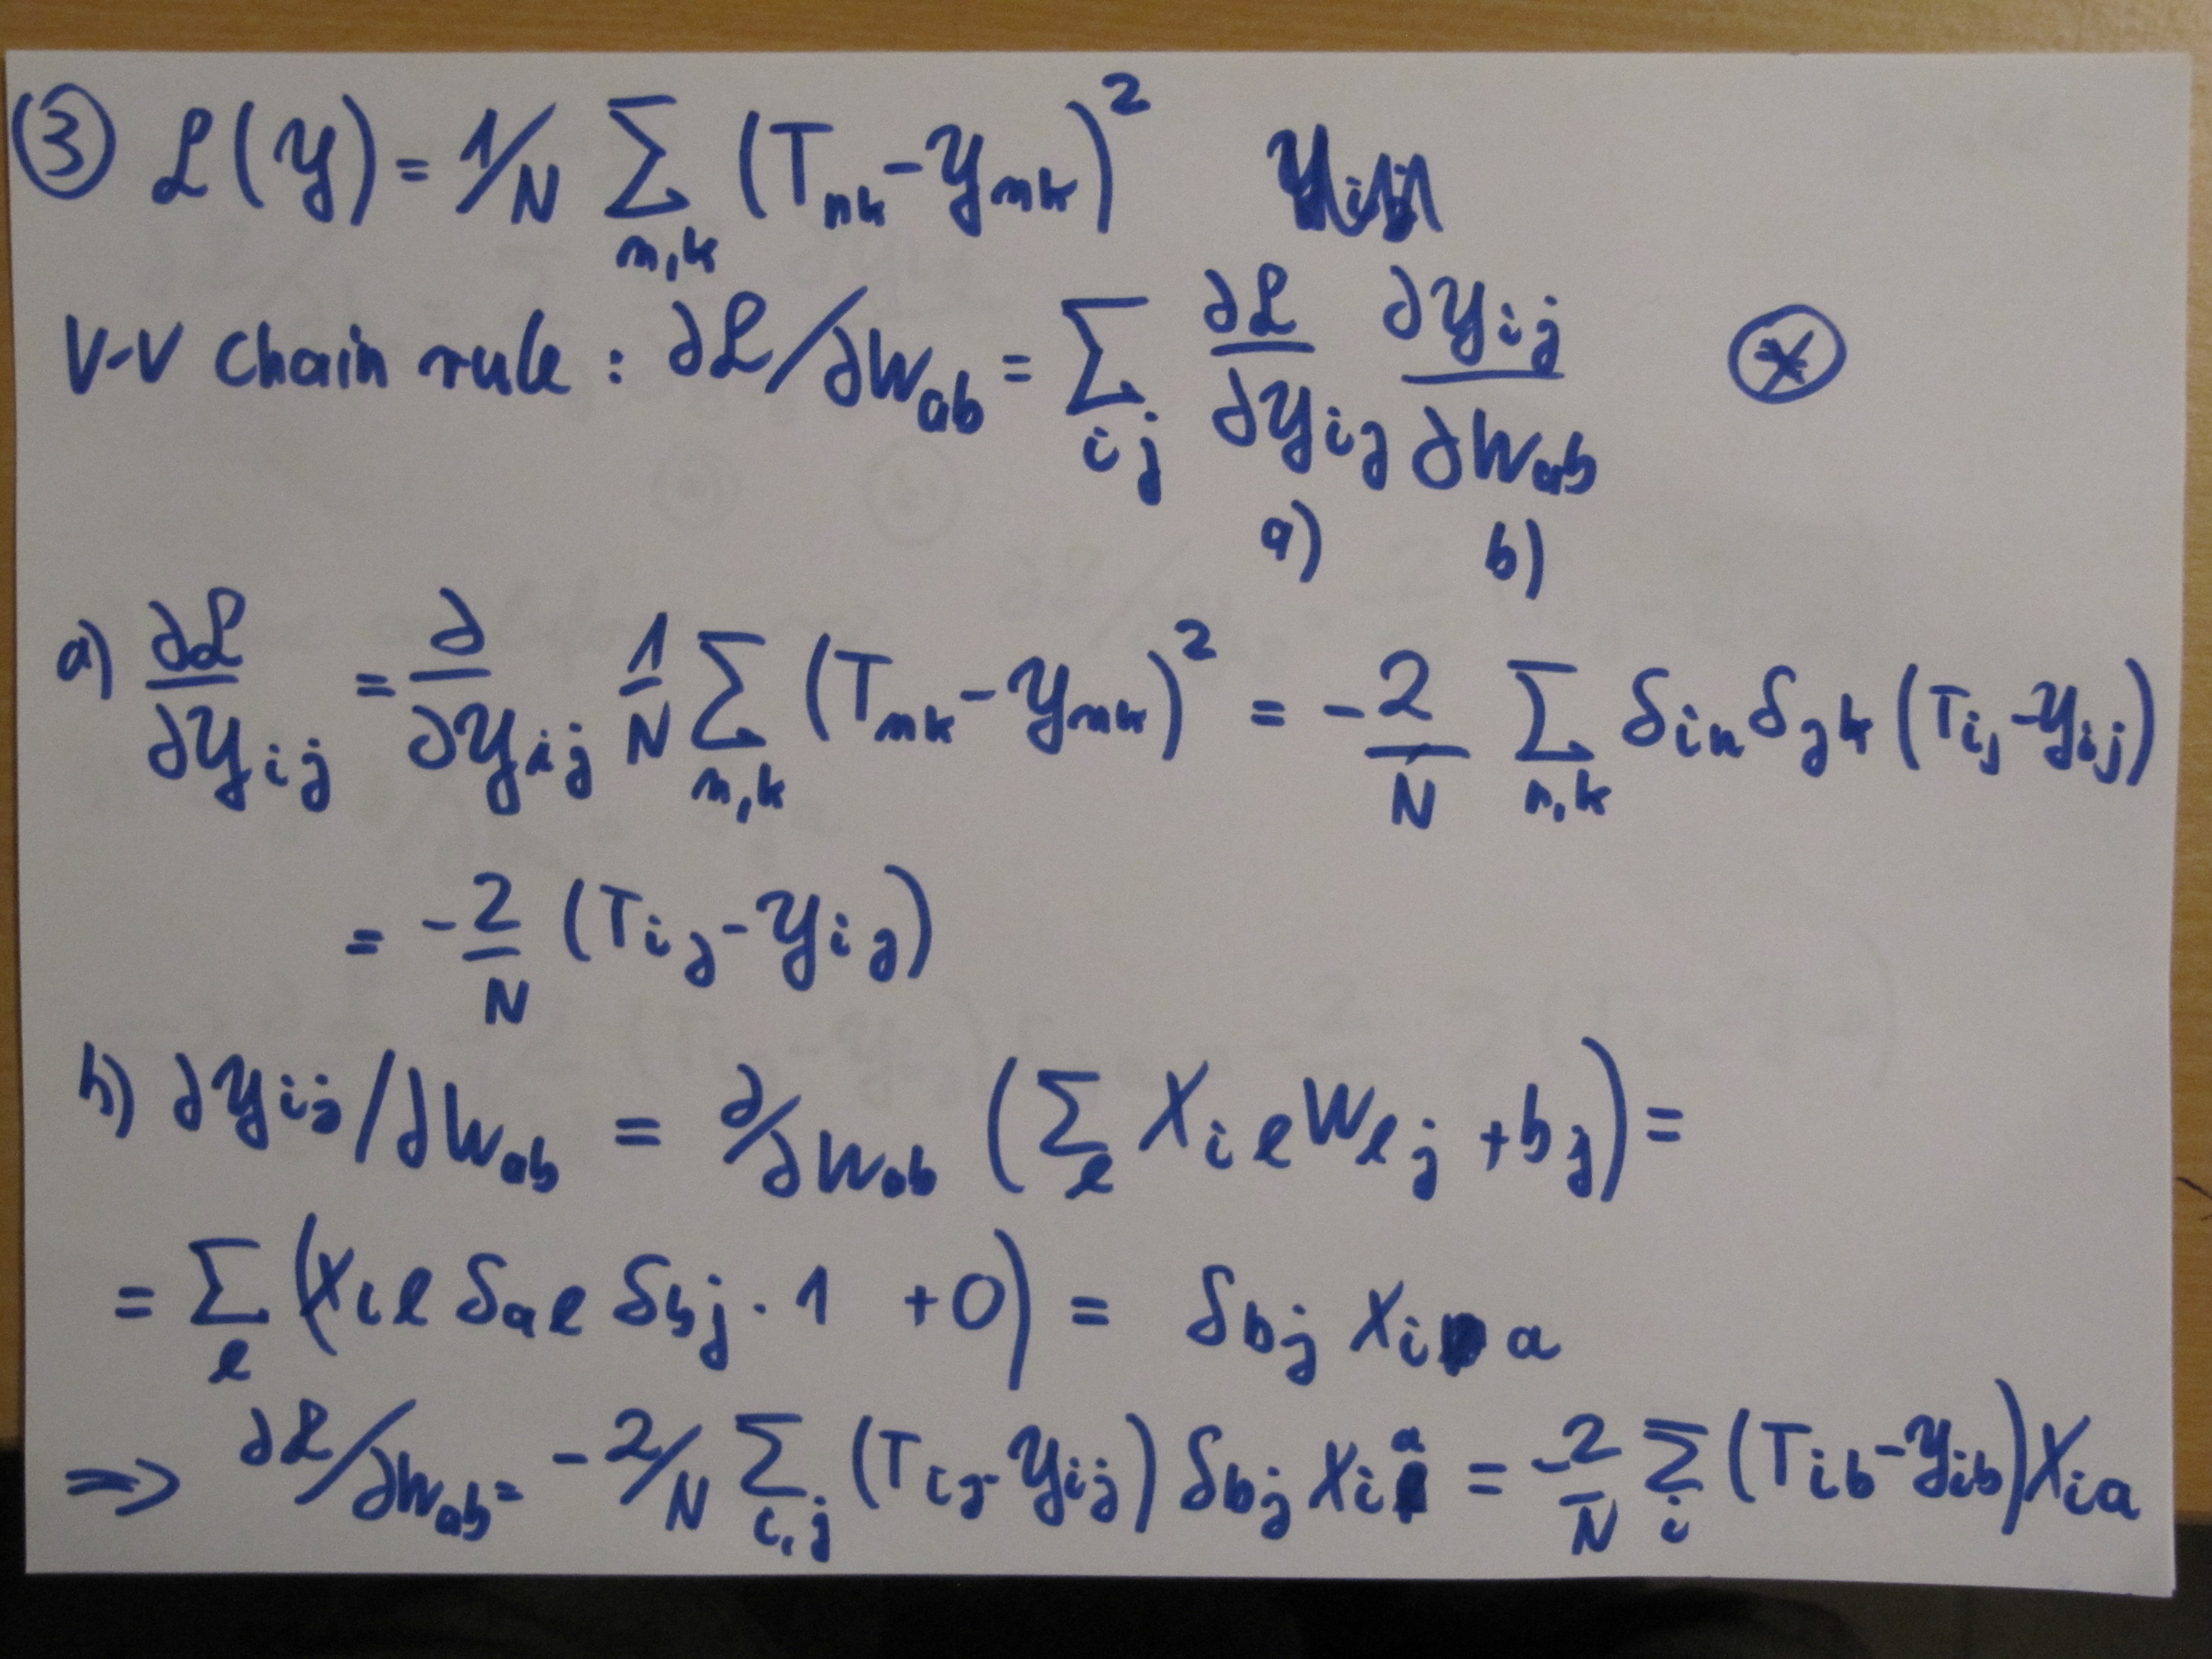 ③ ℒ(y) = 1/N ∑_{n,k} (T_{nk} - y_{nk})²
V-V chain rule : ∂ℒ/∂W_{ab} = ∑_{ij} ∂ℒ/∂y_{ij} ∂y_{ij}/∂W_{ab} ⊛
a) b)
a) ∂ℒ/∂y_{ij} = ∂/∂y_{ij} 1/N ∑_{n,k} (T_{nk} - y_{nk})² = -2/N ∑_{n,k} δ_{in} δ_{jk} (T_{ij} - y_{ij})
= -2/N (T_{ij} - y_{ij})
b) ∂y_{ij}/∂W_{ab} = ∂/∂W_{ab} (∑_ℓ X_{iℓ} W_{ℓj} + b_j) =
= ∑_ℓ (X_{iℓ} δ_{aℓ} δ_{bj} · 1 + 0) = δ_{bj} X_{ia}
=> ∂ℒ/∂W_{ab} = -2/N ∑_{i,j} (T_{ij} - y_{ij}) δ_{bj} X_{ia} = -2/N ∑_i (T_{ib} - y_{ib}) X_{ia}